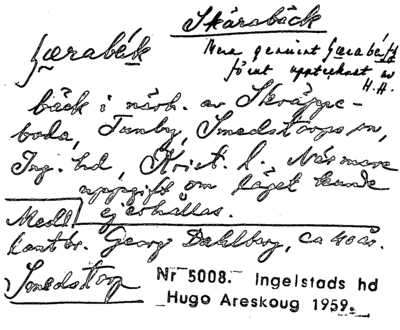 Skärabäck
Gærabék
Mera genuint Gærabék
förut upptecknat av
H.H.
bäck i närh. av Skräppe-
boda, Tanby, Smedstorps sn,
Ing. hd, Krist. l. Närmare
uppgift om läget kunde
Medd. ej erhållas.
kantor. Georg Dahlberg, ca 40 år.
Smedstorp
Nr 5008. Ingelstads hd
Hugo Areskoug 1959.